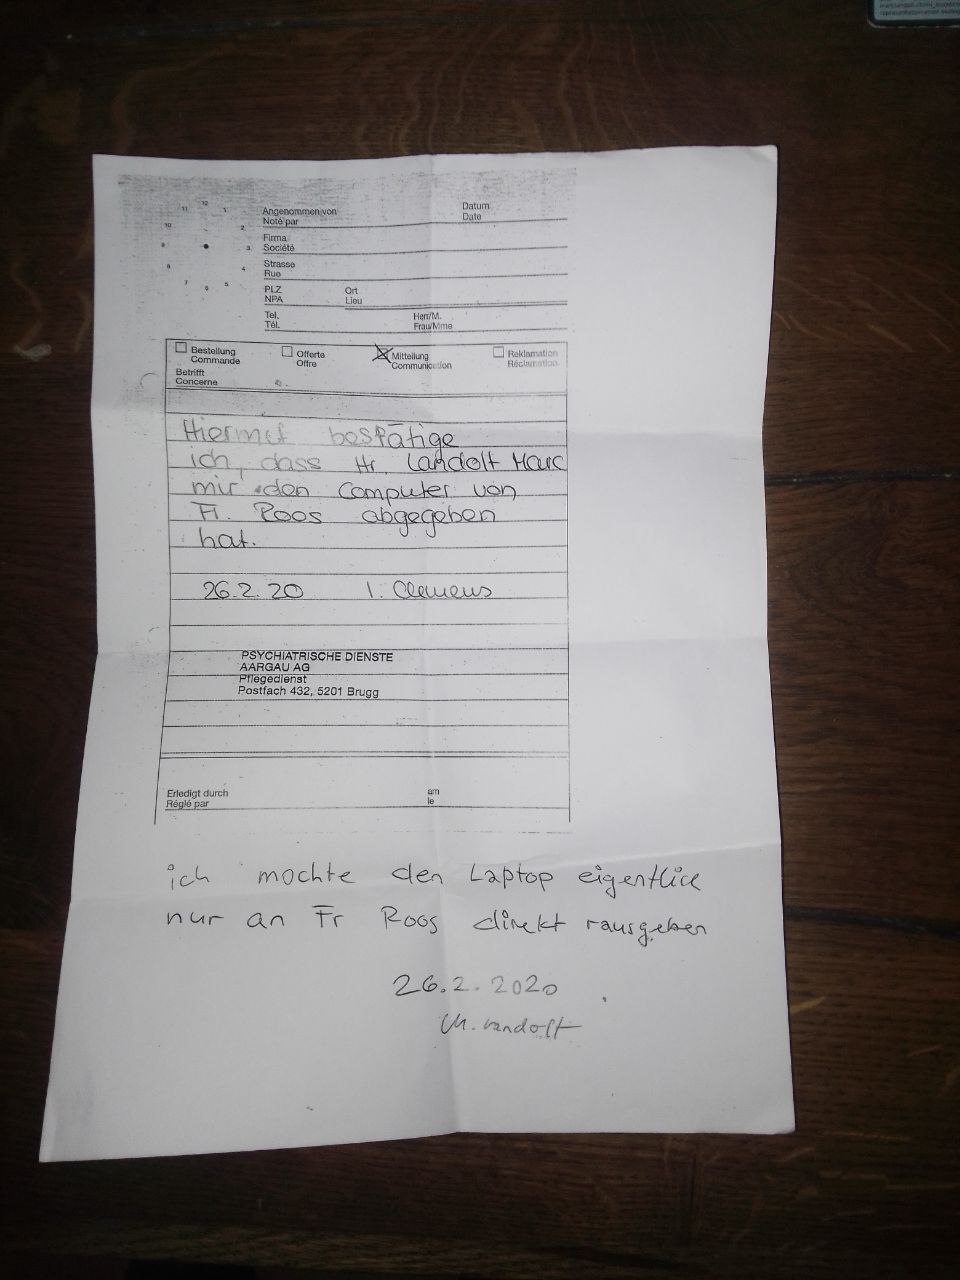 12
11
1
10
2
9
3
8
4
7
6
5
Angenommen von
Noté par
Datum
Date
Firma
Société
Strasse
Rue
PLZ
NPA
Ort
Lieu
Tel.
Tél.
Herr/M.
Frau/Mme
Bestellung
Commande
Offerte
Offre
Mitteilung
Communication
Reklamation
Réclamation
Betrifft
Concerne
Hiermit bestätige
ich, dass Hr. Landolt Marc
mir den Computer von
Fr. Roos abgegeben
hat.
26.2.20 I. Clemens
PSYCHIATRISCHE DIENSTE
AARGAU AG
Pflegedienst
Postfach 432, 5201 Brugg
Erledigt durch
Réglé par
am
le
ich mochte den Laptop eigentlich
nur an Fr Roos direkt rausgeben
26.2.2020
M. Landolt